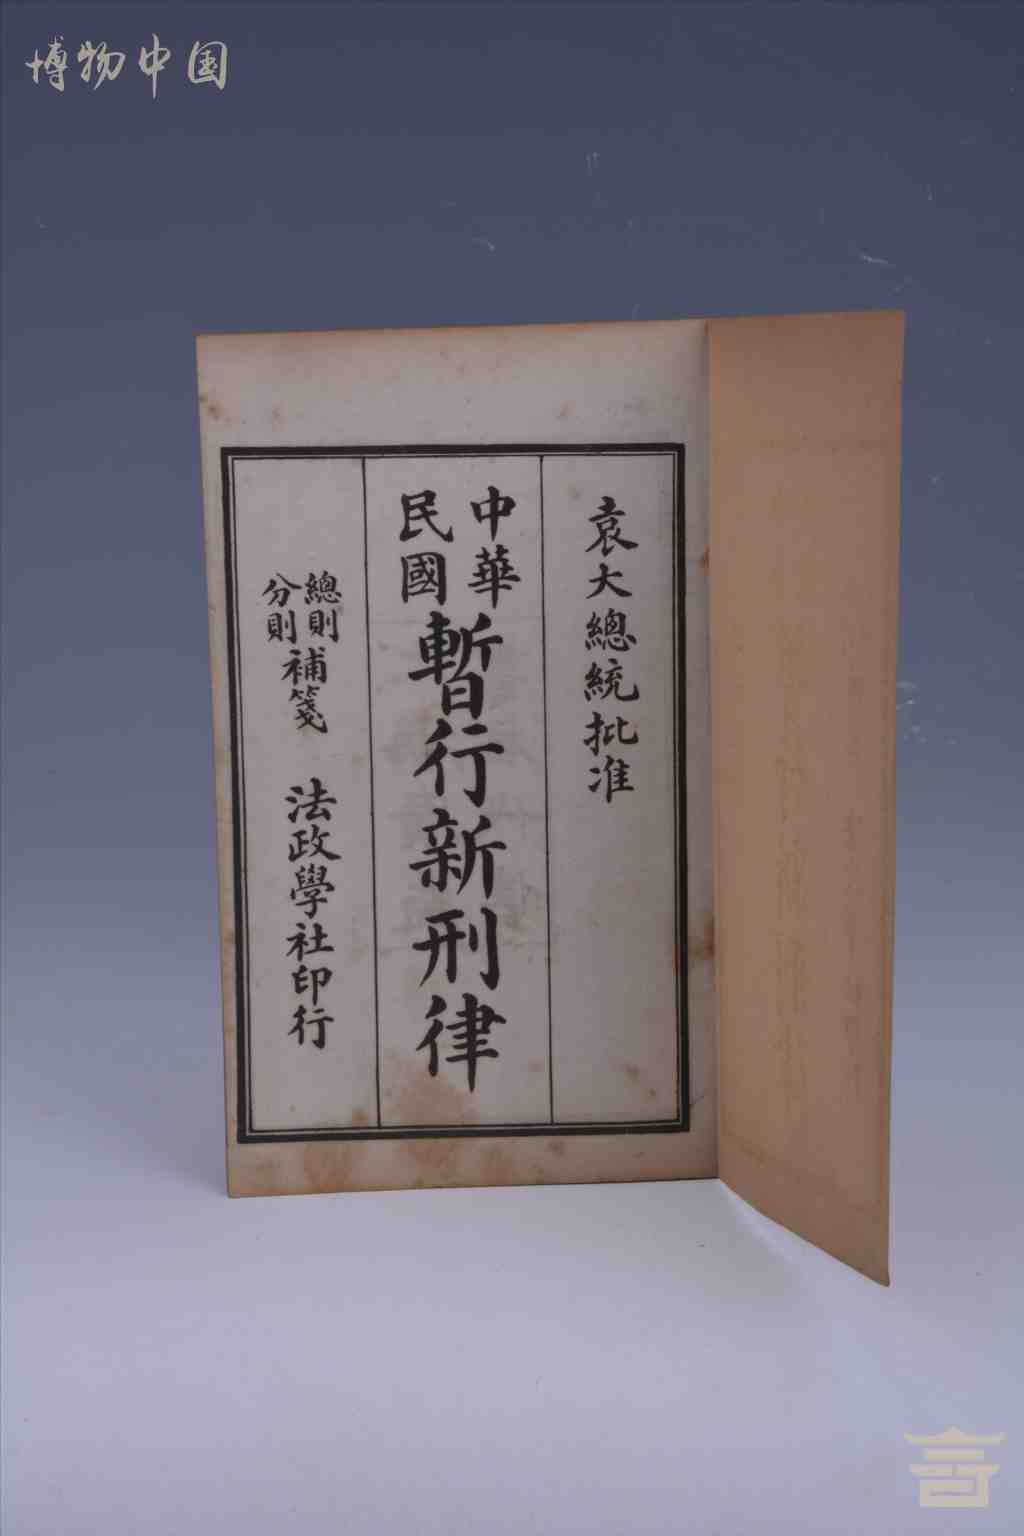 博物中国
袁大總統批准
中華民國暫行新刑律
總則分則補箋 法政學社印行